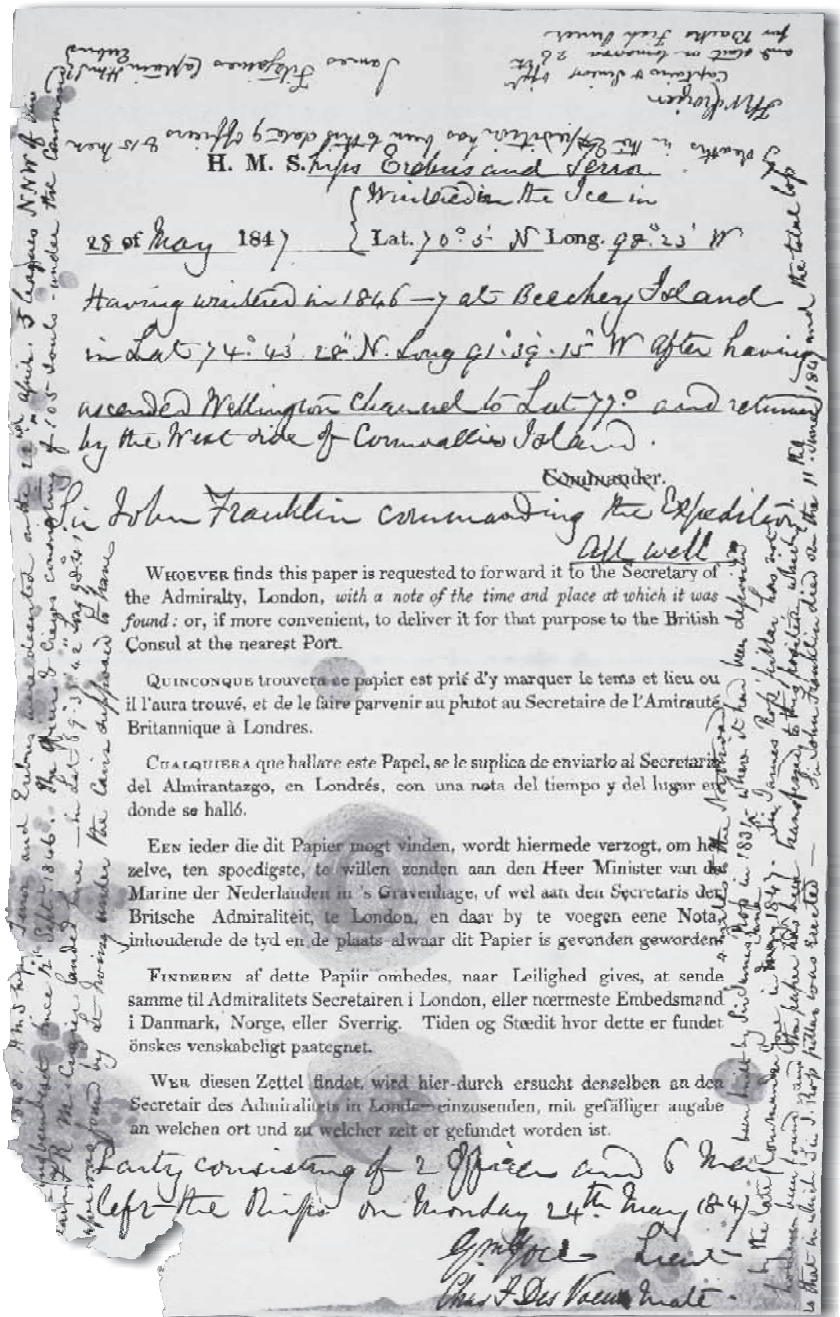 H. M. S.hips Erebus and Terror
Wintered in the Ice in
28 of May 1847 Lat. 70°5' N Long. 98°.23' W
Having wintered in 1846—7 at Beechey Island
in Lat 74° 43' 28" N. Long 91°.39'.15" W After having
ascended Wellington Channel to Lat 77° and returned
by the West side of Cornwallis Island.
Commander.
Sir John Franklin commanding the Expedition
All well
WHOEVER finds this paper is requested to forward it to the Secretary of
the Admiralty, London, with a note of the time and place at which it was
found: or, if more convenient, to deliver it for that purpose to the British
Consul at the nearest Port.
QUINCONQUE trouvera ce papier est prié d'y marquer le tems et lieu ou
il l'aura trouvé, et de le faire parvenir au plutot au Secretaire de l'Amirauté
Britannique à Londres.
CUALQUIERA que hallare este Papel, se le suplica de enviarlo al Secretario
del Almirantazgo, en Londrés, con una nota del tiempo y del lugar en
donde se halló.
EEN ieder die dit Papier mogt vinden, wordt hiermede verzogt, om het
zelve, ten spoedigste, te willen zenden aan den Heer Minister van de
Marine der Nederlanden in 's Gravenhage, of wel aan den Secretaris der
Britsche Admiraliteit, te London, en daar by te voegen eene Nota,
inhoudende de tyd en de plaats alwaar dit Papier is gevonden geworden.
FINDEREN af dette Papiir ombedes, naar Leilighed gives, at sende
samme til Admiralitets Secretairen i London, eller nœrmeste Embedsmand
i Danmark, Norge, eller Sverrig. Tiden og Stœdit hvor dette er fundet
önskes venskabeligt paategnet.
WER diesen Zettel findet, wird hier-durch ersucht denselben an den
Secretair des Admiralitets in London einzusenden, mit gefälliger angabe
an welchen ort und zu welcher zeit er gefundet worden ist.
Party consisting of 2 Officers and 6 Men
left the Ships on Monday 24th May 1847
Gm Gore Lieut
Chas F Des Voeux Mate.
1848. HM Ships Terror and Erebus were deserted on the 22nd April. 5 leagues NNW of this
since 12th Sept 1846. The Officers & Crews consisting of 105 souls under the Command
F R M Crozier landed here—in Lat 69° 37' 42" Long 98° 41'
paper was found by Lt Irving under the Cairn supposed to have
been built by Sir James Ross in 1831 where it had been deposited
4 miles to the Northward
by the late Commander Gore in June 1847. Sir James Ross' pillar has not
however been found and the paper has been transferred to this position which
is that in which Sir J. Ross pillar was erected — Sir John Franklin died on the 11th June 1847 and the total loss
by deaths in the Expedition has been to this date 9 Officers & 15 men
James Fitzjames Captain HMS Erebus
F R M Crozier
Captain & Senior Offr
and start on tomorrow 26th
for Backs Fish River